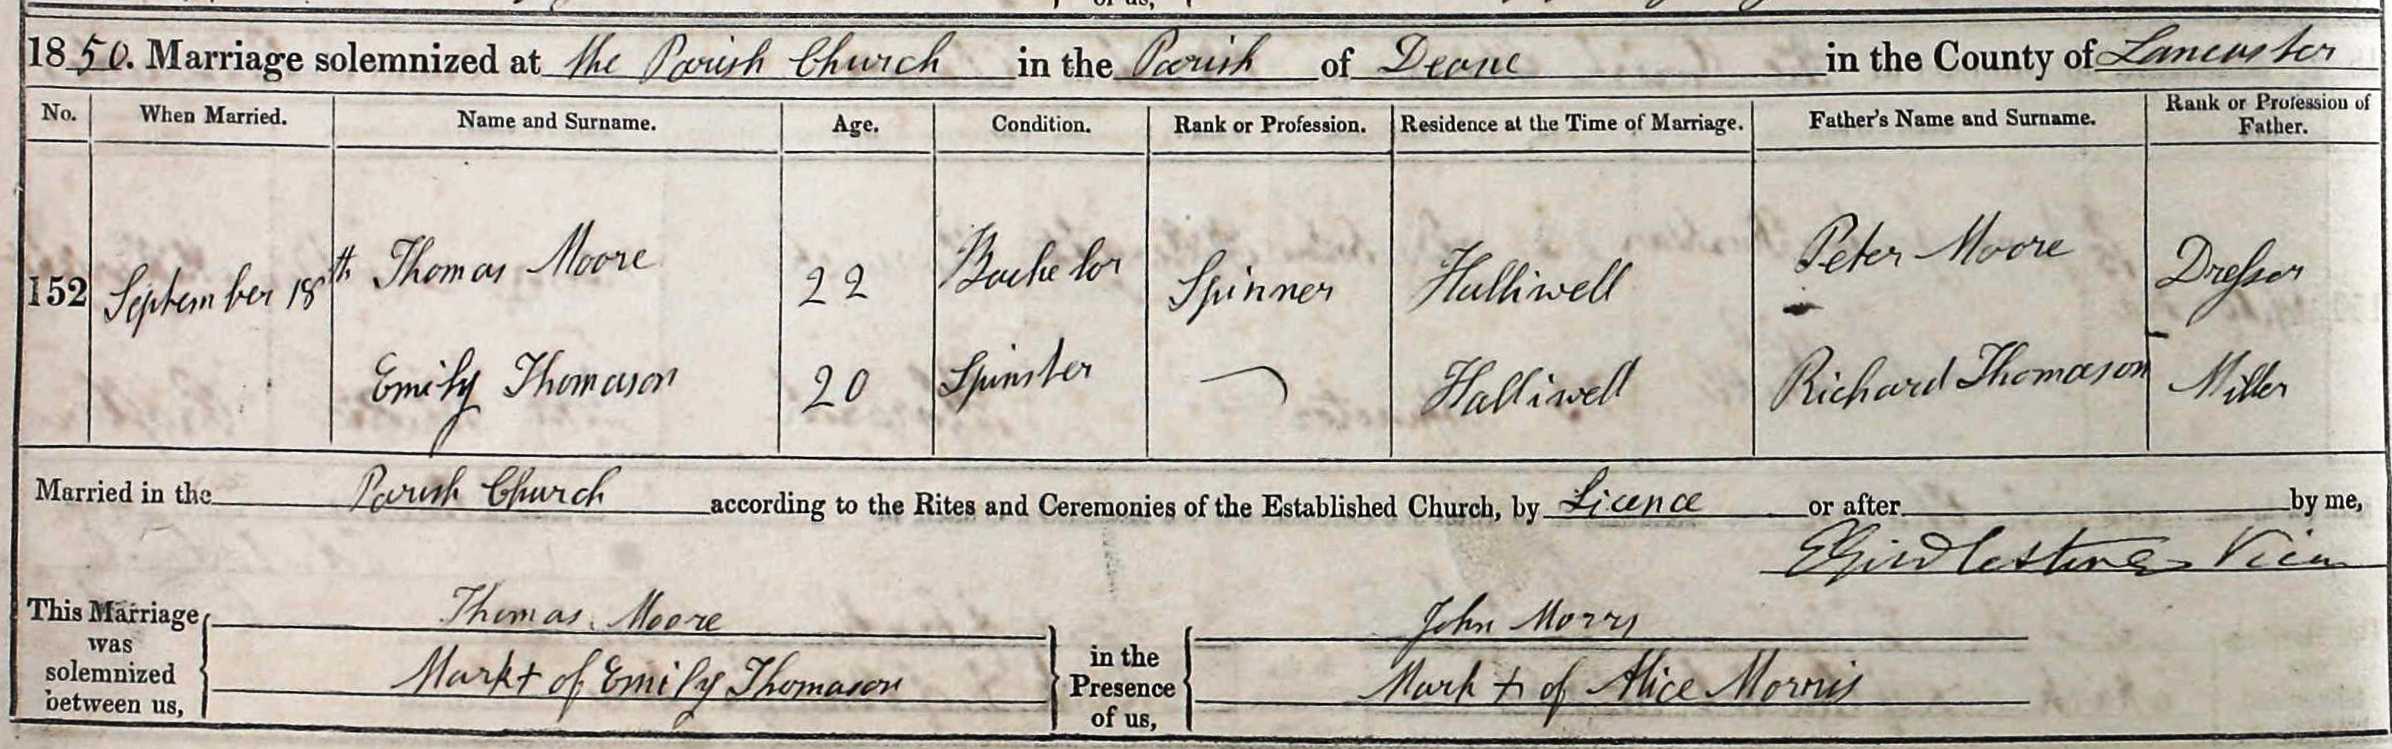 of us,
1850. Marriage solemnized at the Parish Church in the Parish of Deane in the County of Lancaster
No. When Married. Name and Surname. Age. Condition. Rank or Profession. Residence at the Time of Marriage. Father's Name and Surname. Rank or Profession of Father.
152 September 18th Thomas Moore 22 Bachelor Spinner Halliwell Peter Moore Dresser
Emily Thomason 20 Spinster Halliwell Richard Thomason Miller
Married in the Parish Church according to the Rites and Ceremonies of the Established Church, by Licence or after by me,
EGirdlestone Vicar
This Marriage was solemnized between us,
Thomas Moore
Mark + of Emily Thomason
in the Presence of us,
John Morris
Mark + of Alice Morris